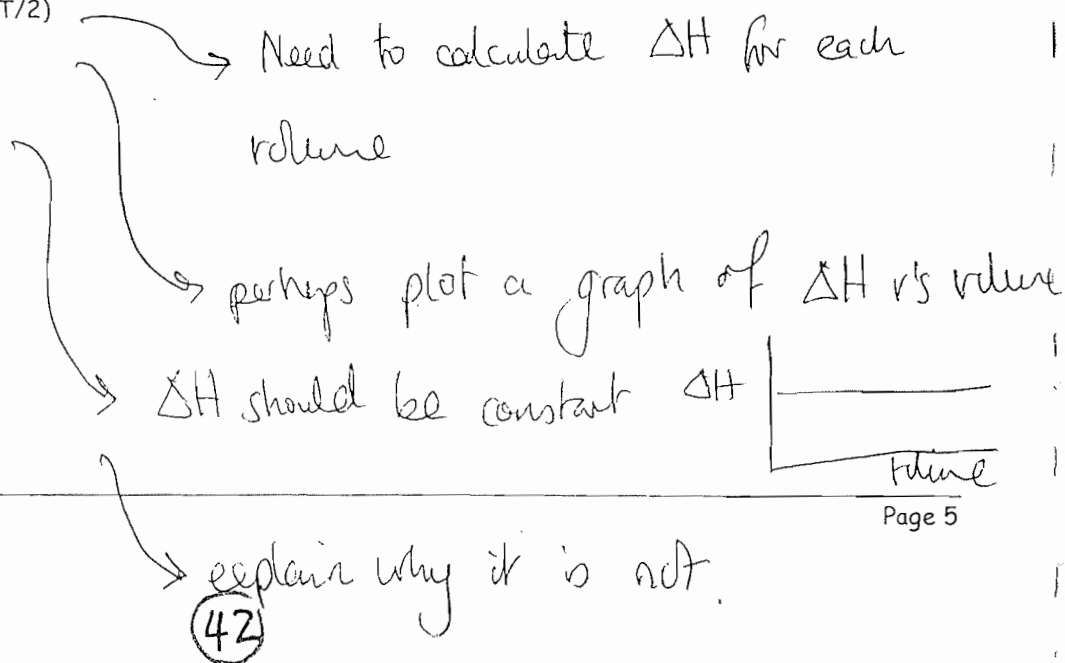 T/2)
Need to calculate ΔH for each
volume
perhaps plot a graph of ΔH v's volume
ΔH should be constant ΔH
volume
Page 5
explain why it is not.
42